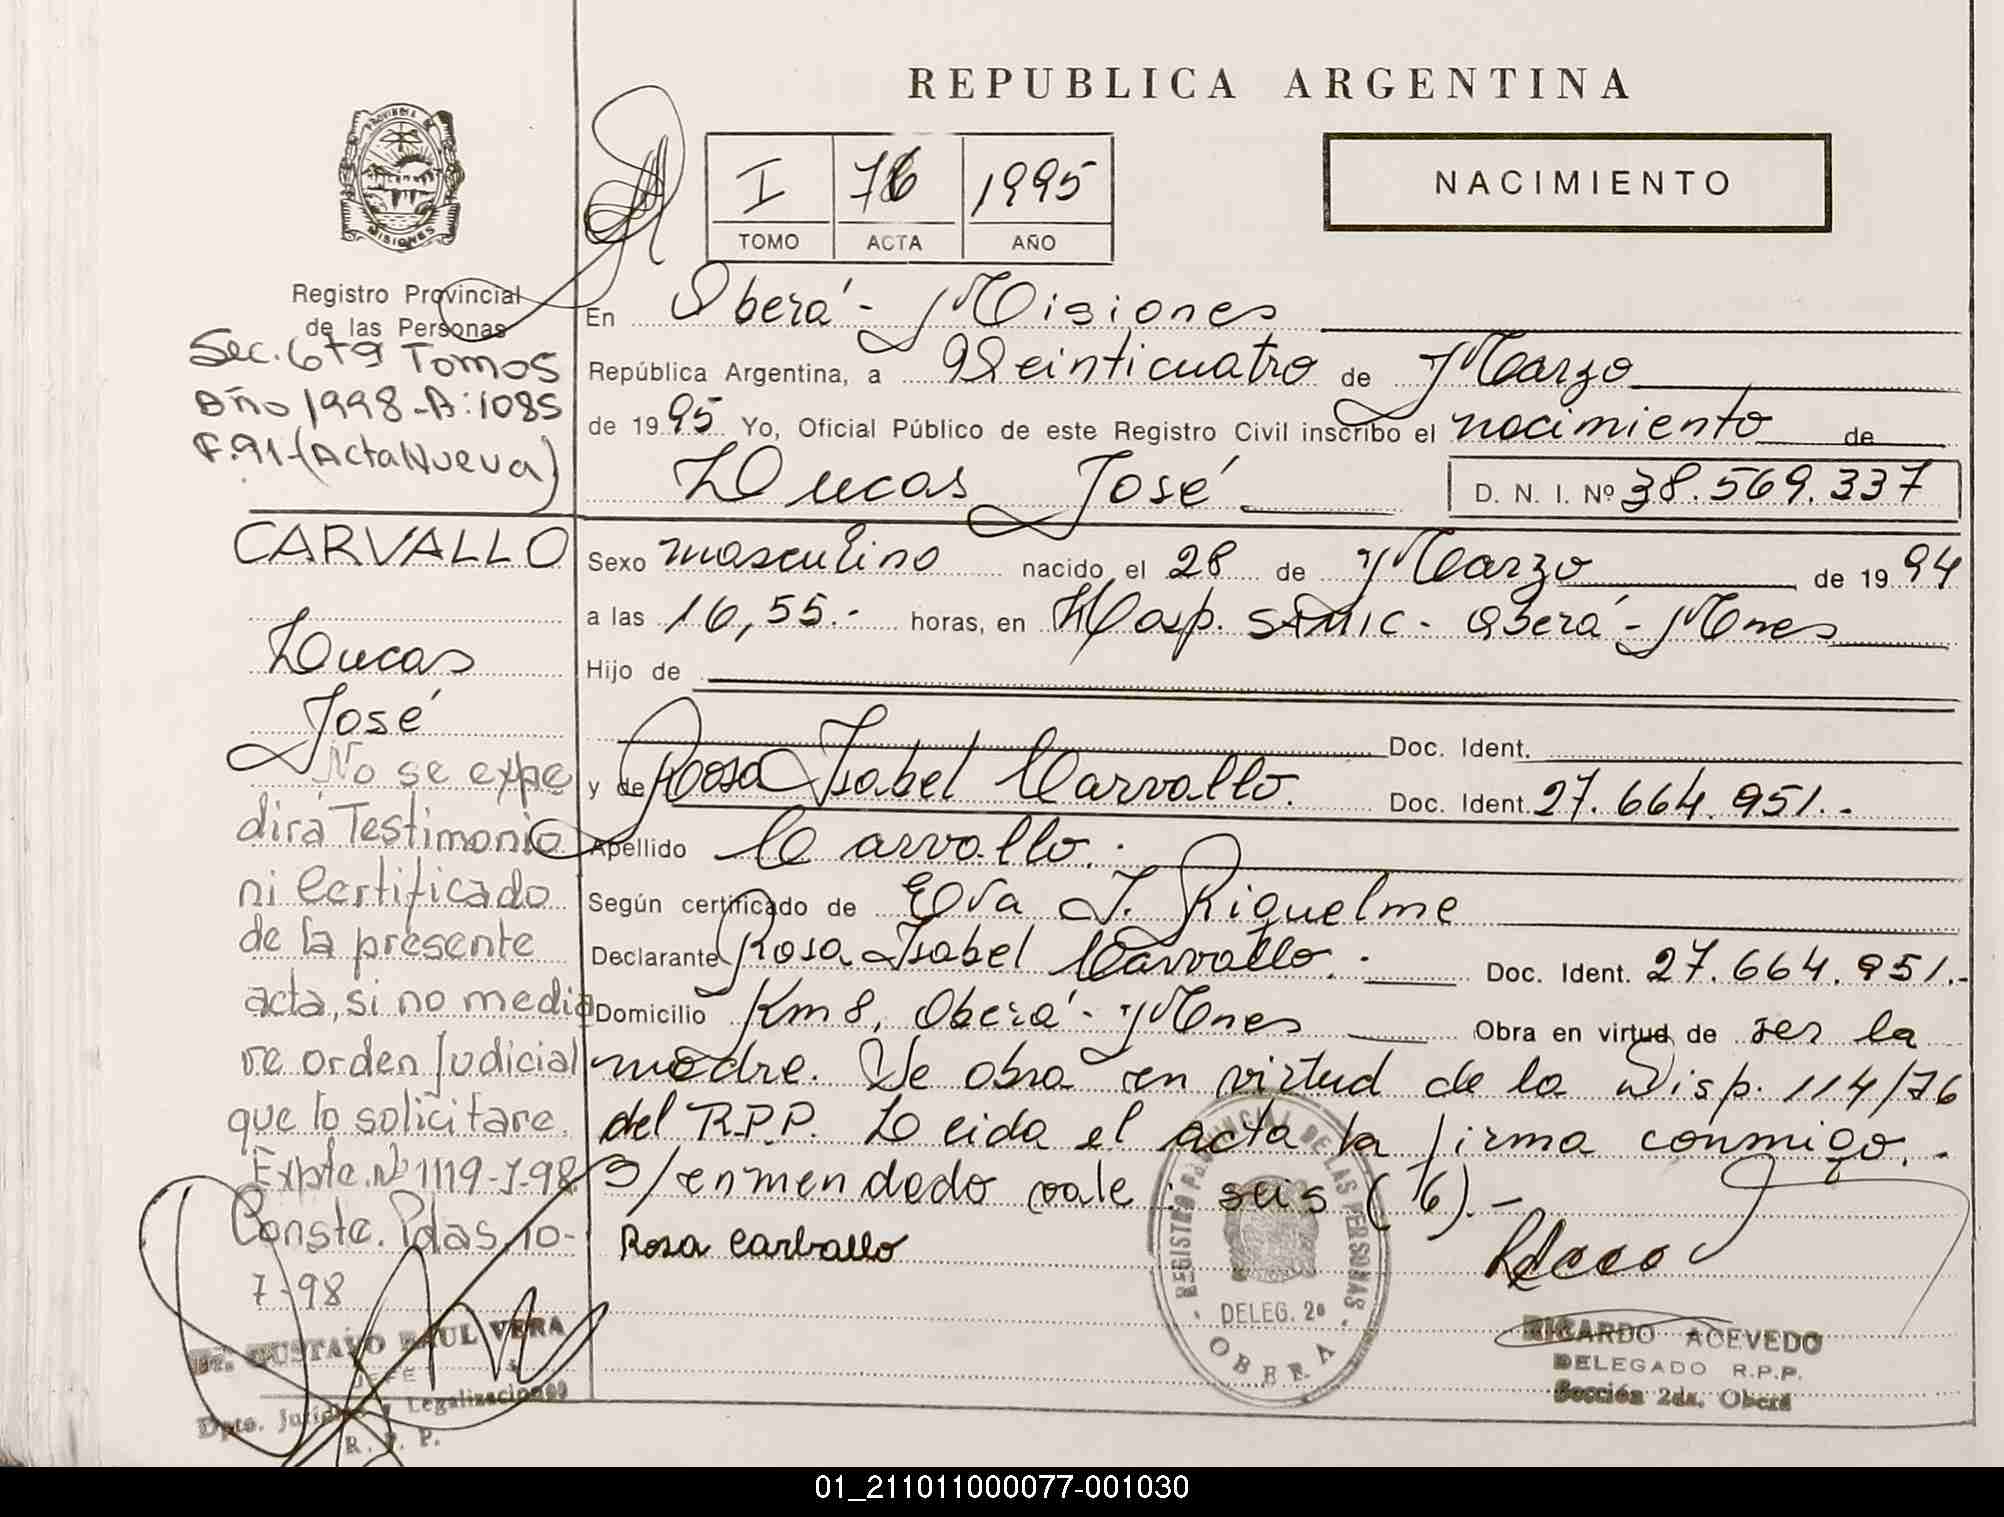 REPUBLICA ARGENTINA
PROVINCIA DE
MISIONES
I 76 1995
TOMO ACTA AÑO
NACIMIENTO
Registro Provincial
de las Personas
Sec. 6t9 Tomos
Año 1998-A:1085
F.91-(Acta Nueva)
CARVALLO
Lucas
José
No se expe
dirá Testimonio
ni Certificado
de la presente
acta, si no media
re orden Judicial
que lo solicitare.
Expte. Nº 1119-7-98
Conste. Pdas, 10-
7-98
Dr. GUSTAVO RAUL VERA
JEFE
Dpto. Jurídico y Legalizaciones
R. P. P.
En Oberá - Misiones
República Argentina, a Veinticuatro de Marzo
de 1995 Yo, Oficial Público de este Registro Civil inscribo el nacimiento de
Lucas José D. N. I. Nº 38.569.337
Sexo masculino nacido el 28 de Marzo de 1994
a las 16,55.- horas, en Hosp. SAMIC - Oberá - Mnes
Hijo de
Doc. Ident.
y de Rosa Isabel Carvallo. Doc. Ident. 27.664.951.-
Apellido Carvallo.-
Según certificado de Eva J. Riquelme
Declarante Rosa Isabel Carvallo.- Doc. Ident. 27.664.951.-
Domicilio Km 8, Oberá - Mnes Obra en virtud de ser la
madre. Se obra en virtud de la Disp. 114/76
del R.P.P. Leida el acta la firma conmigo.-
S/enmendado vale: seis (76).-
Rosa Carballo
REGISTRO PROVINCIAL DE LAS PERSONAS
DELEG. 2ª
OBERA
RICARDO ACEVEDO
DELEGADO R.P.P.
Sección 2da. Oberá
01_211011000077-001030